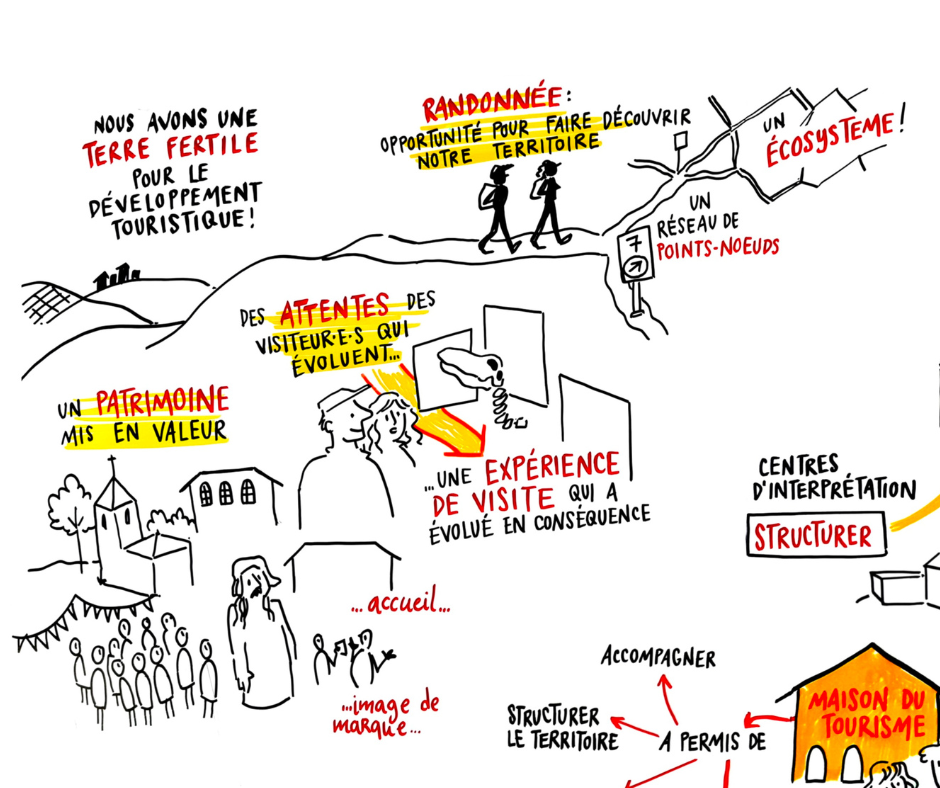 NOUS AVONS UNE
TERRE FERTILE
POUR LE
DÉVELOPPEMENT
TOURISTIQUE!
RANDONNÉE:
OPPORTUNITÉ POUR FAIRE DÉCOUVRIR
NOTRE TERRITOIRE
UN
ÉCOSYSTEME!
UN
RÉSEAU DE
POINTS-NOEUDS
7
DES ATTENTES DES
VISITEUR·E·S QUI
ÉVOLUENT...
...UNE EXPÉRIENCE
DE VISITE QUI A
ÉVOLUÉ EN CONSÉQUENCE
UN PATRIMOINE
MIS EN VALEUR
...accueil...
...image de
marque...
CENTRES
D'INTERPRÉTATION
STRUCTURER
ACCOMPAGNER
STRUCTURER
LE TERRITOIRE
A PERMIS DE
MAISON DU
TOURISME